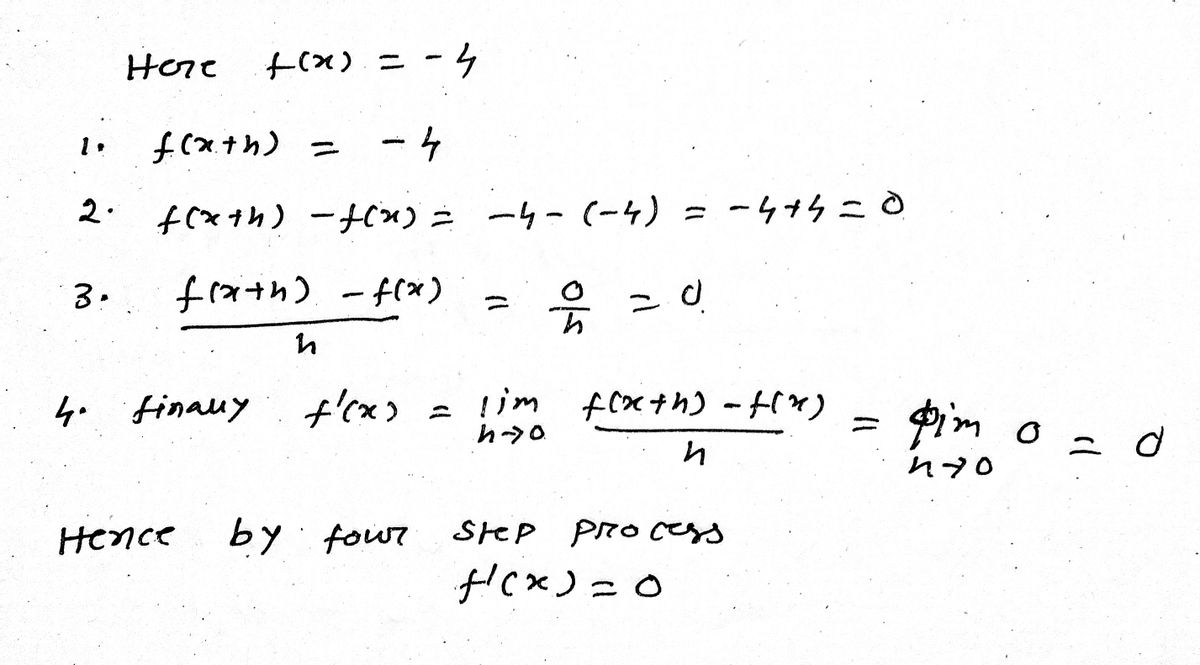 Here f(x) = -4
1. f(x+h) = -4
2. f(x+h) - f(x) = -4 - (-4) = -4+4 = 0
3. \frac{f(x+h) - f(x)}{h} = \frac{0}{h} = 0.
4. finally f'(x) = \lim_{h→0} \frac{f(x+h) - f(x)}{h} = \lim_{h→0} 0 = 0
Hence by four step process
f'(x) = 0